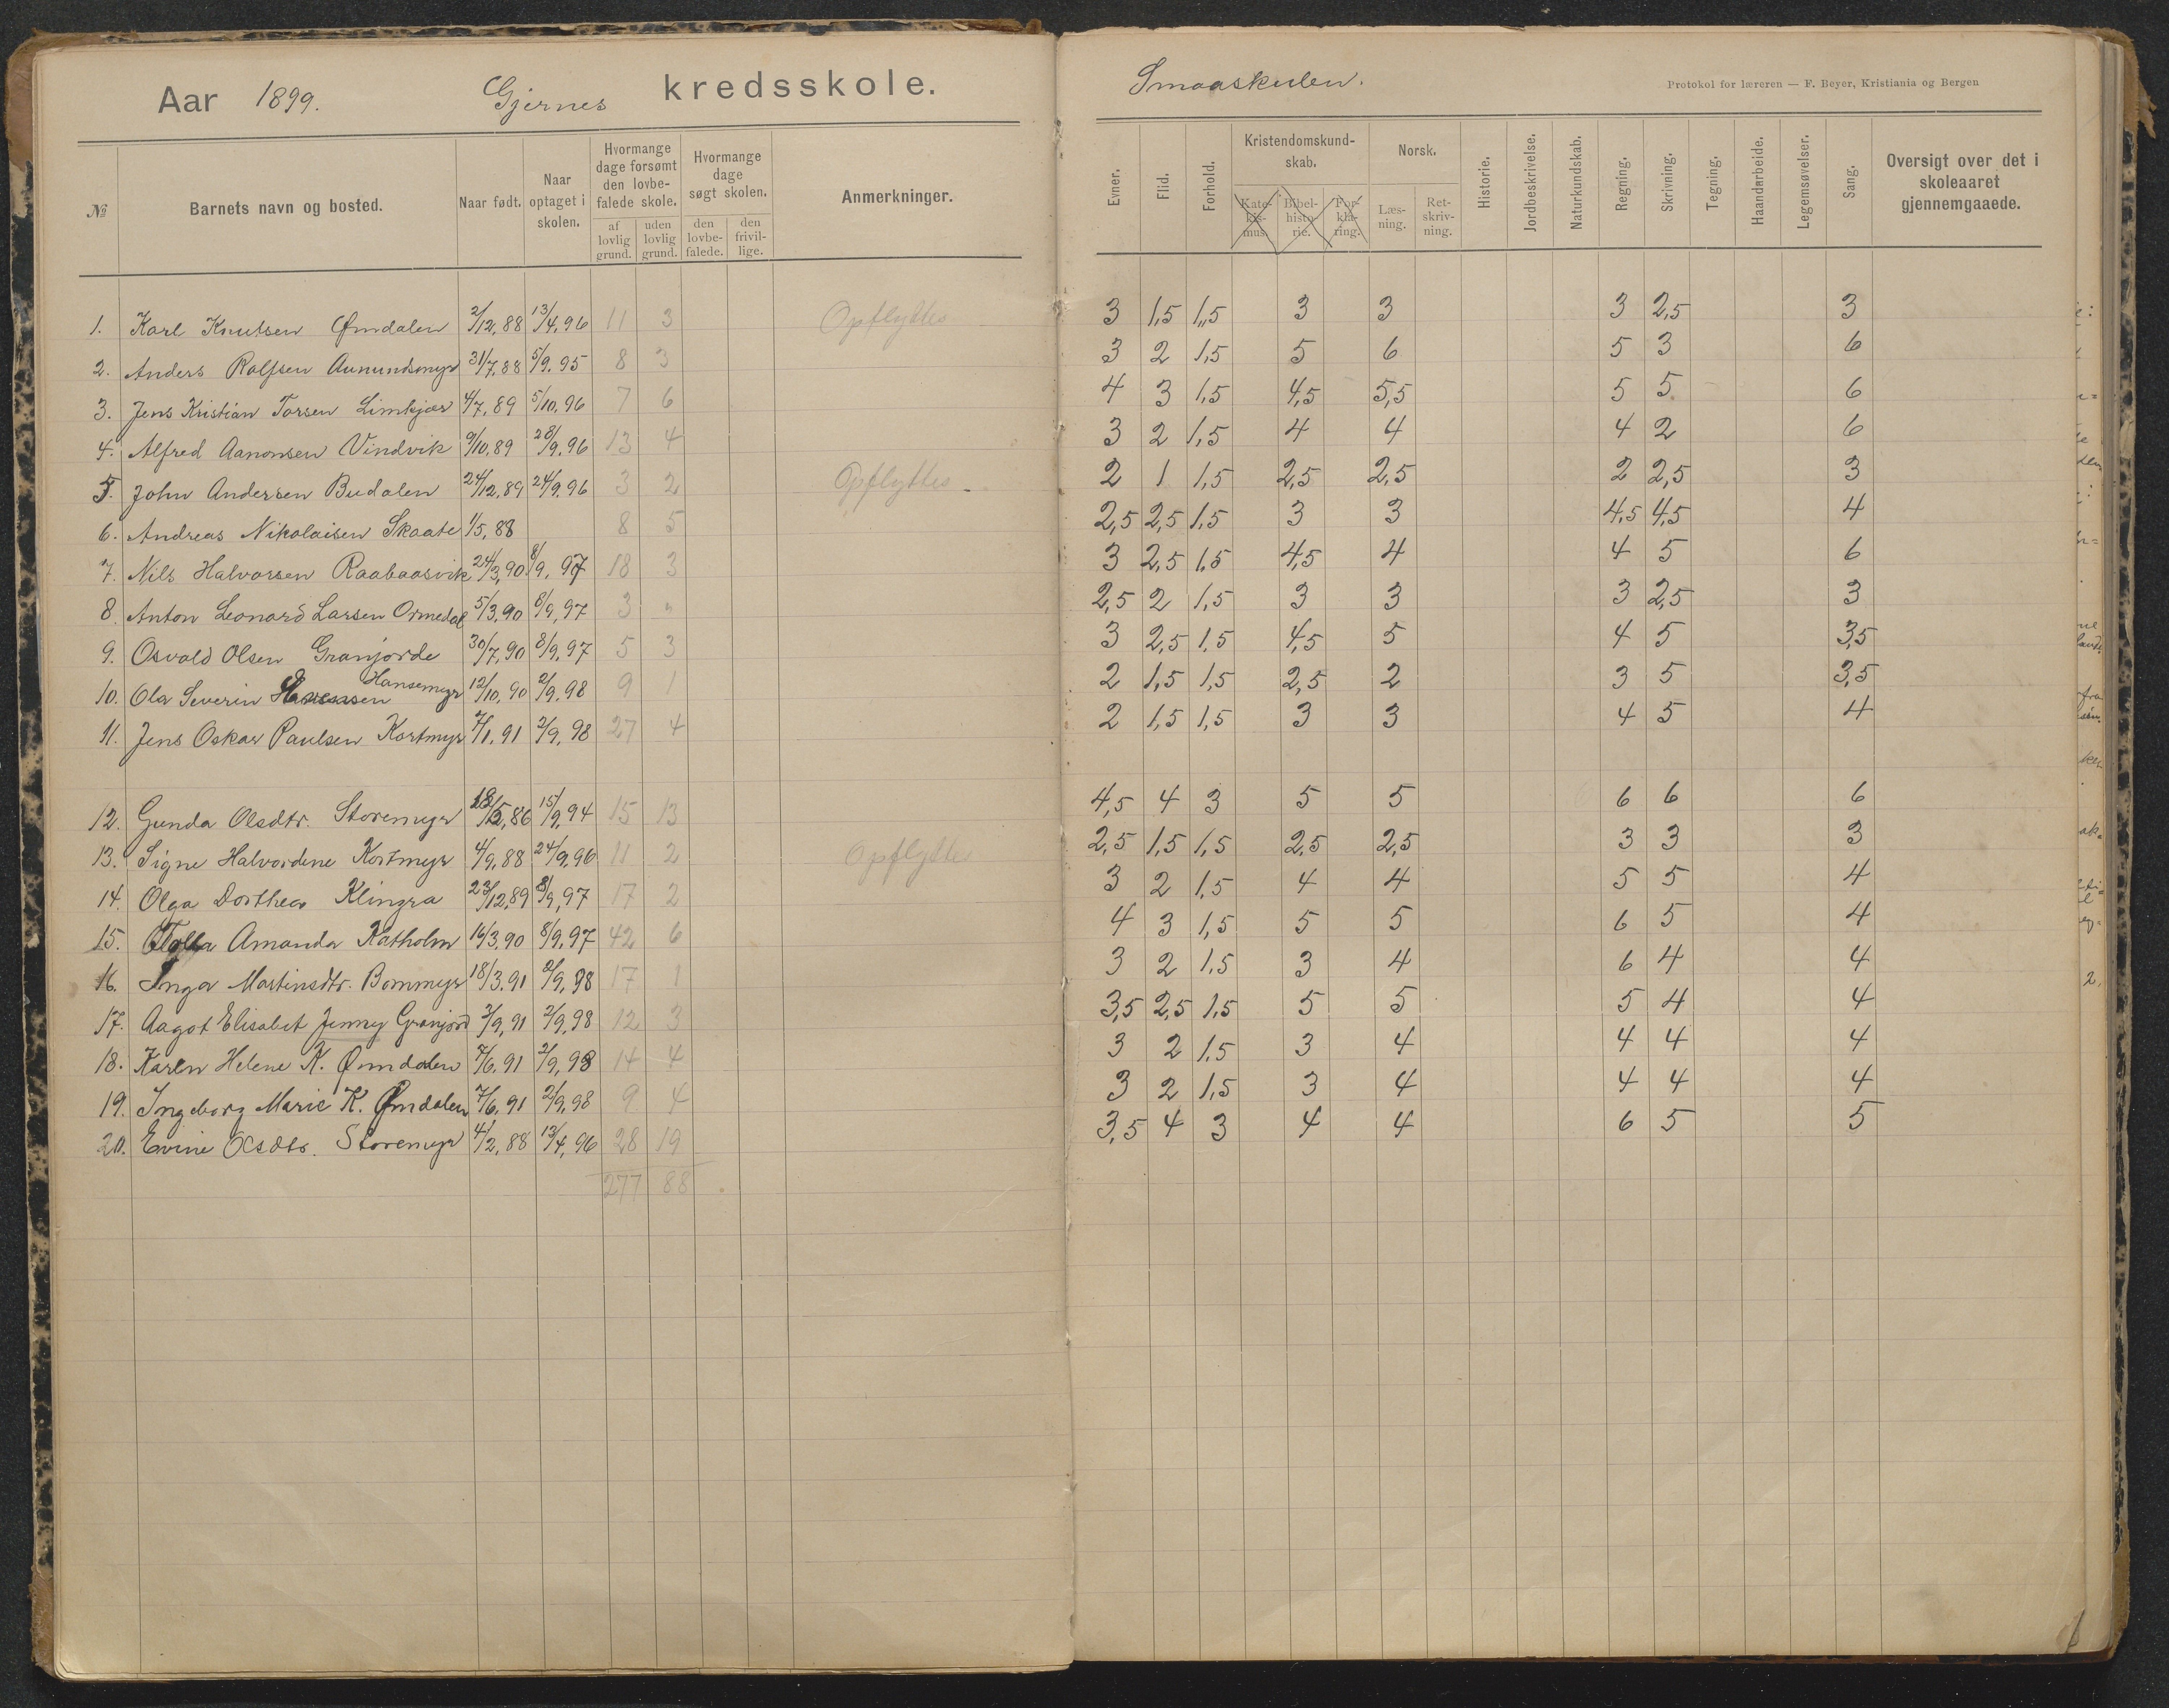 Aar 1899. Gjernes kredsskole. Smaaskulen.
Protokol for læreren — F. Beyer, Kristiania og Bergen
№ Barnets navn og bosted. Naar født. Naar optaget i skolen. Hvormange dage forsømt den lovbe- falede skole. af lovlig grund. uden lovlig grund. Hvormange dage søgt skolen. den lovbe- falede. den frivil- lige. Anmerkninger. Evner. Flid. Forhold. Kristendomskund- skab. Kate- kis- mus. Bibel- histo- rie. For- kla- ring. Norsk. Læs- ning. Ret- skriv- ning. Historie. Jordbeskrivelse. Naturkundskab. Regning. Skrivning. Tegning. Haandarbeide. Legemsøvelser. Sang. Oversigt over det i skoleaaret gjennemgaaede.
1. Karl Knutsen Ømdalen 2/12,88 13/4,96 11 3 Opflyttes 3 1,5 1,5 3 3 3 2,5 3
2. Anders Rolfsen Aunundsmyr 31/7,88 5/9.95 8 3 3 2 1,5 5 6 5 3 6
3. Jens Kristian Torsen Limkjær 4/7,89 5/10,96 7 6 4 3 1,5 4,5 5,5 5 5 6
4. Alfred Aanonsen Vindvik 9/10,89 28/9,96 13 4 3 2 1,5 4 4 4 2 6
5. John Andersen Budalen 24/12,89 24/9,96 3 2 Opflyttes 2 1 1,5 2,5 2,5 2 2,5 3
6. Andreas Nikolaisen Skaate 1/5,88 8 5 2,5 2,5 1,5 3 3 4,5 4,5 4
7. Nils Halvorsen Raabaasvik 24/3,90 8/9,97 18 3 3 2,5 1,5 4,5 4 4 5 6
8. Anton Leonard Larsen Ormedal 5/3,90 8/9,97 3 " 2,5 2 1,5 3 3 3 2,5 3
9. Osvald Olsen Granjorde 30/7,90 8/9,97 5 3 3 2,5 1,5 4,5 5 4 5 3,5
10. Ola Severin Hansemyr 12/10,90 2/9,98 9 1 2 1,5 1,5 2,5 2 3 5 3,5
11. Jens Oskar Paulsen Kortmyr 7/1,91 2/9,98 27 4 2 1,5 1,5 3 3 4 5 4
12. Gunda Olsdtr. Storemyr 5,86 15/9,94 15 13 4,5 4 3 5 5 6 6 6
13. Signe Halvordine Kortmyr 4/9,88 24/9,96 11 2 Opflyttes 2,5 1,5 1,5 2,5 2,5 3 3 3
14. Olga Dorthea Klingra 23/12,89 8/9,97 17 2 3 2 1,5 4 4 5 5 4
15. Amanda Katholm 16/3,90 8/9,97 42 6 4 3 1,5 5 5 6 5 4
16. Inga Martinsdtr. Bommyr 18/3.91 2/9,98 17 1 3 2 1,5 3 4 6 4 4
17. Aagot Elisabet Jenny Granjord 2/9,91 2/9,98 12 3 3,5 2,5 1,5 5 5 5 4 4
18. Karen Helene K. Ømdalen 7/6,91 2/9,98 14 4 3 2 1,5 3 4 4 4 4
19. Ingeborg Marie K. Ømdalen 7/6,91 2/9,98 9 4 3 2 1,5 3 4 4 4 4
20. Evine Olsdtr. Storemyr 4/2,88 13/4,96 28 19 3,5 4 3 4 4 6 5 5
277 88